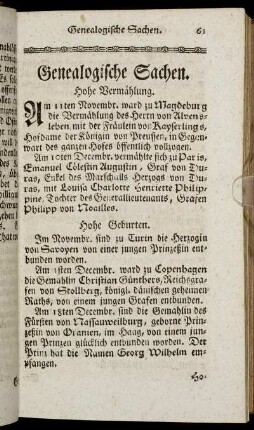 Genealogische Sachen. 61
Genealogische Sachen.
Hohe Vermählung.
Am 11ten Novembr. ward zu Magdeburg
die Vermählung des Herrn von Alvens-
leben mit der Fräulein von Kayserlings,
Hofdame der Königin von Preussen, in Gegen-
wart des ganzen Hofes öffentlich vollzogen.
Am 10ten Decembr. vermählte sich zu Paris,
Emanuel Cölestin Augustin, Graf von Du-
ras, Enkel des Marschalls Herzogs von Du-
ras, mit Louisa Charlotte Henriette Philip-
pine, Tochter des Generallieutenants, Grafen
Philipp von Noailles.
Hohe Geburten.
Im Novembr. sind zu Turin die Herzogin
von Savoyen von einer jungen Prinzeßin ent-
bunden worden.
Am 1sten Decembr. ward zu Copenhagen
die Gemahlin Christian Günthers, Reichsgra-
fen von Stollberg, königl. dänischen geheimen
Raths, von einem jungen Grafen entbunden.
Am 18ten Decembr. sind die Gemahlin des
Fürsten von Nassauweilburg, geborne Prin-
zeßin von Oranien, im Haag, von einem jun-
gen Prinzen glücklich entbunden worden. Der
Prinz hat die Namen Georg Wilhelm em-
pfangen.
Ho-